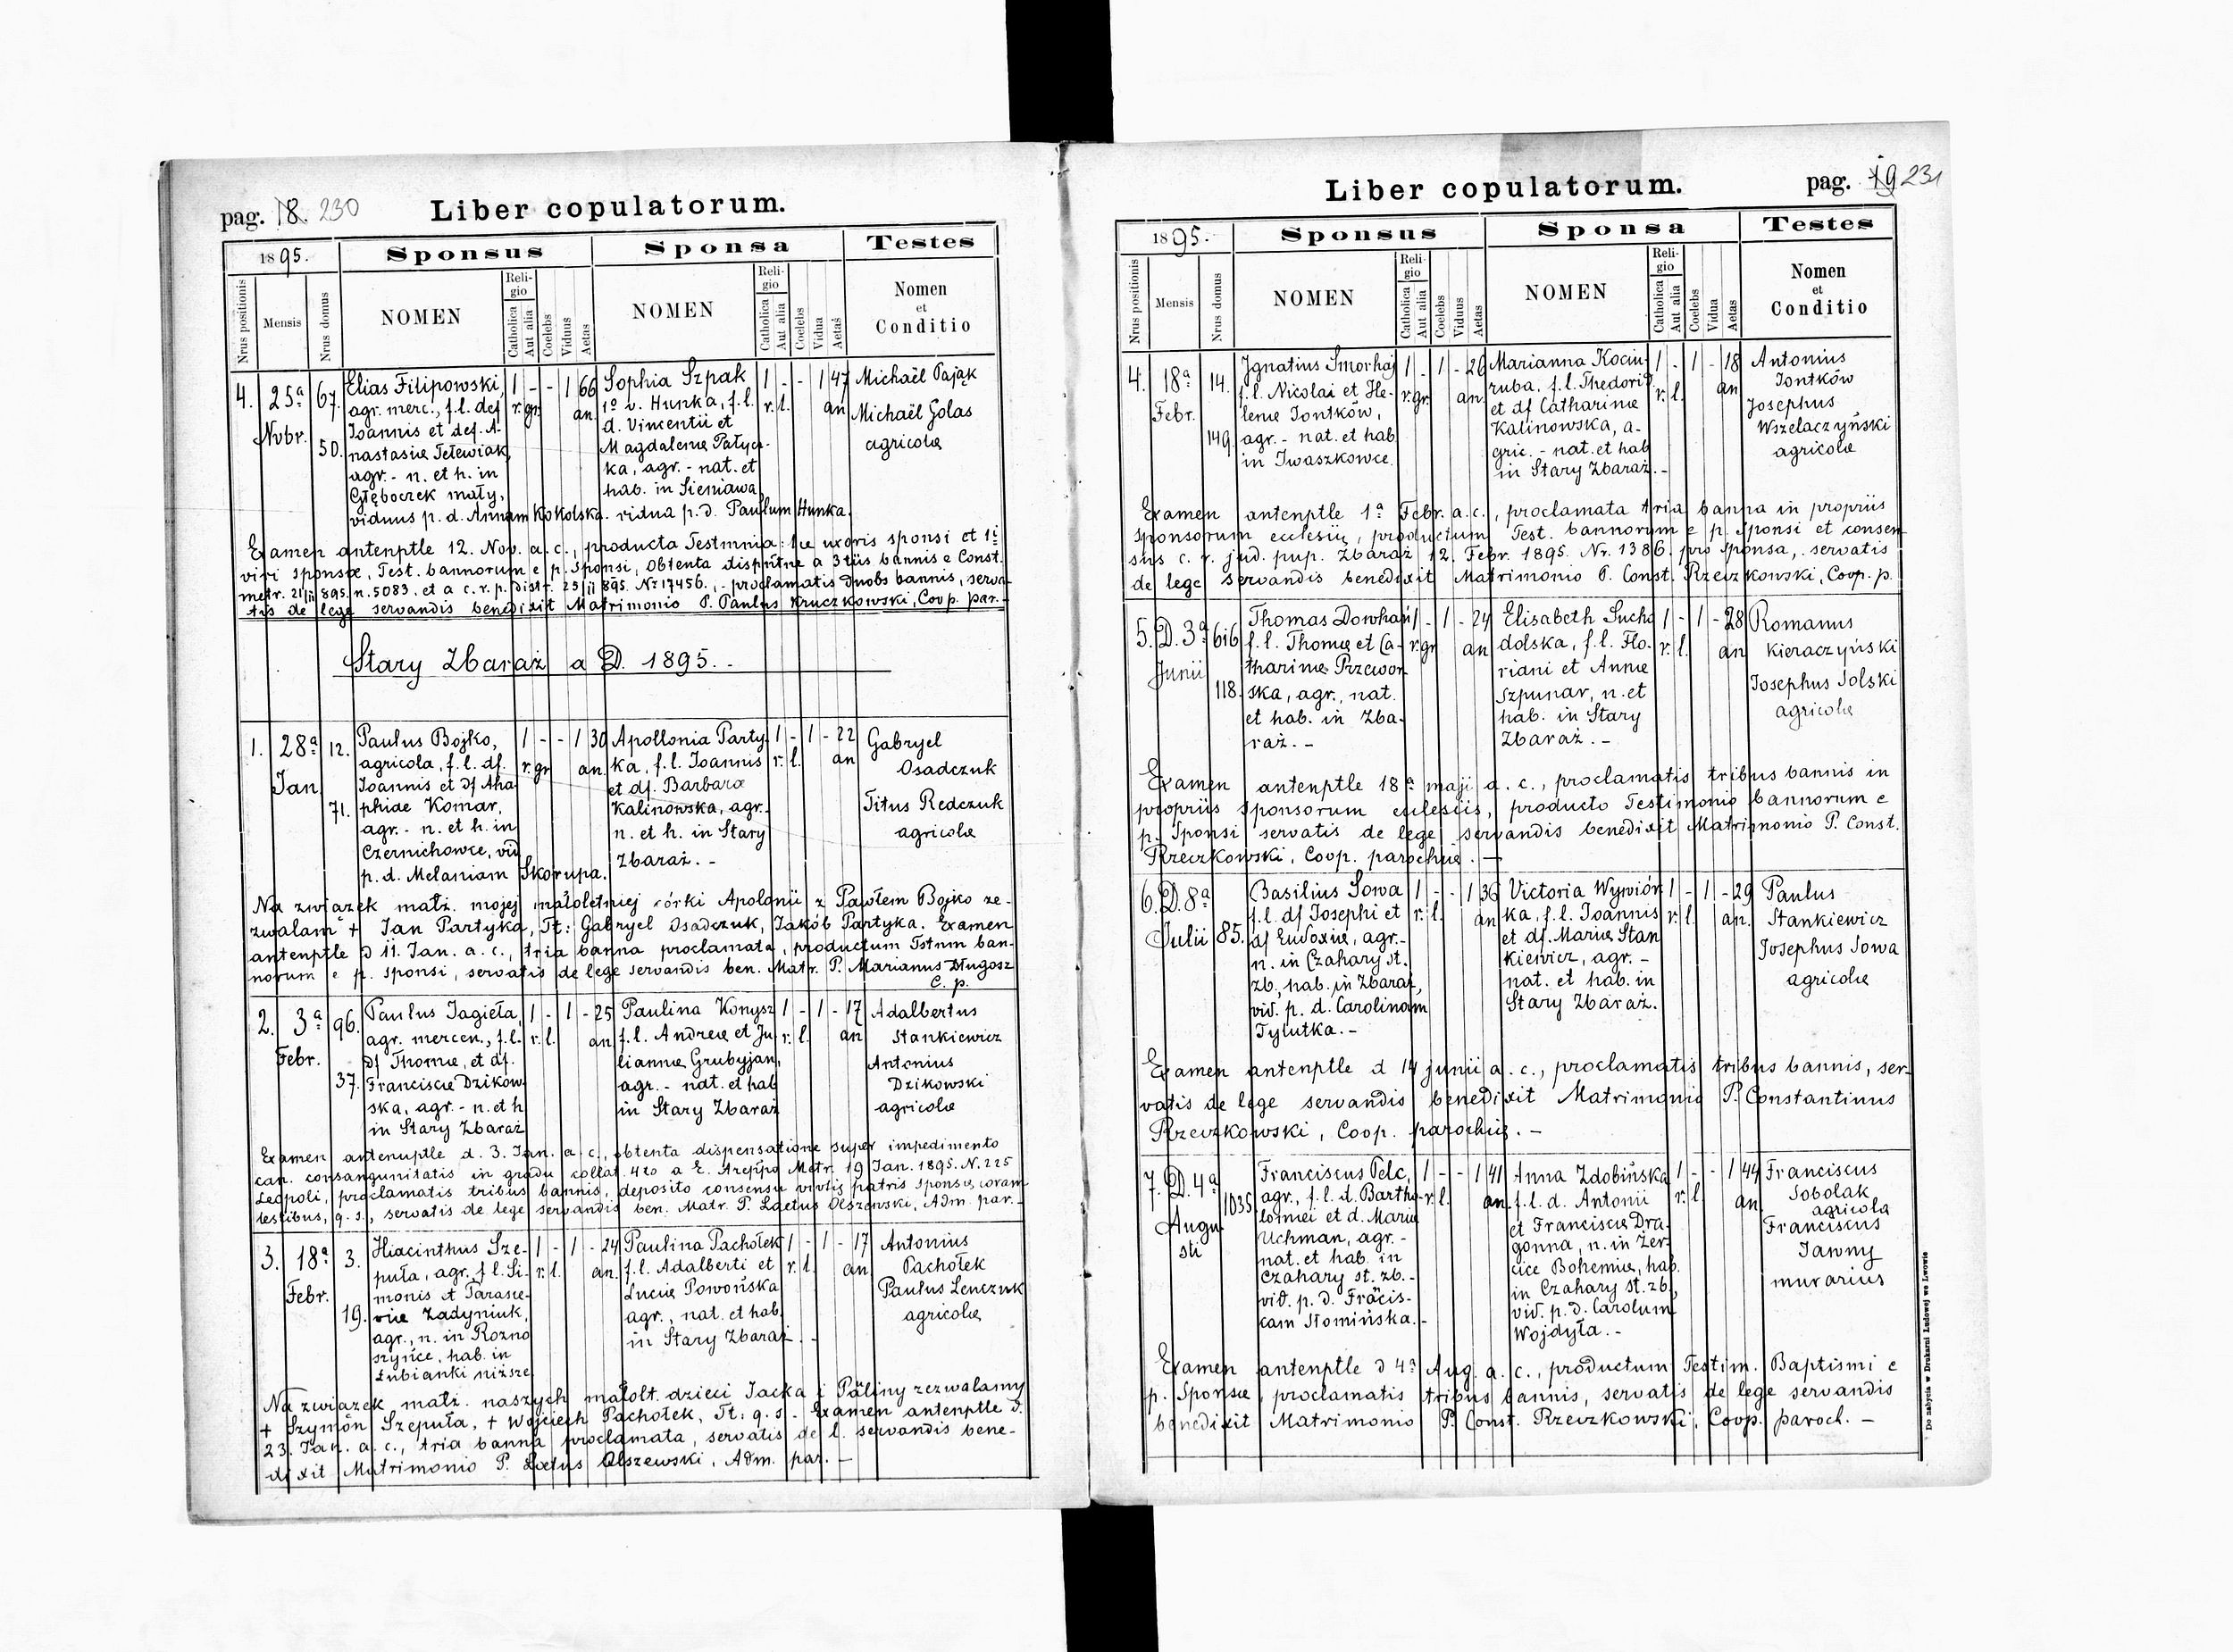 pag. 18. 230
Liber copulatorum.
1895.
Sponsus
Sponsa
Testes
Nrus positionis
Mensis
Nrus domus
NOMEN
Religio
Catholica
Aut alia
Coelebs
Viduus
Aetas
NOMEN
Religio
Catholica
Aut alia
Coelebs
Vidua
Aetas
Nomen
et
Conditio
4. 25ª Nvbr. 67. 50.
Elias Filipowski,
agr. merc., f.l. def
Joannis et def. A-
nastasiæ Telewiak
agr. - n. et h. in
Głęboczek mały,
viduus p. d. Annam Kokolska.
1 r.gr. - - 1 66 an.
Sophia Szpak
1º v. Hunka, f.l.
d. Vincentii et
Magdalenæ Patyc-
ka, agr. - nat. et
hab. in Sieniawa
vidua p. d. Paulum Hunka.
1 r.l. - - 1 47 an
Michaël Pająk
Michaël Golas
agricolæ
Examen antenptle 12. Nov. a. c., producta Testmnia: 1æ uxoris sponsi et 1i
viri sponsæ, Test. bannorum e p. Sponsi, obtenta dispñtne a 3tiis bannis e Const.
metr. 21/11 895. n. 5083. et a c. r. p. Distr. 25/11 895. Nº 17456., - proclamatis duobs bannis, serva-
tis de lege servandis benedixit Matrimonio P. Paulus Kruczkowski, Coop. par. -
Stary Zbaraż a D. 1895. -
1. 28ª Jan 12. 71.
Paulus Bojko,
agricola, f. l. df.
Joannis et df Aha-
phiae Komar,
agr. - n. et h. in
Czernichowce, vid
p. d. Melaniam Skorupa.
1 r.gr - - 1 30 an.
Apollonia Party-
ka, f. l. Joannis
et df. Barbaræ
Kalinowska, agr. -
n. et h. in Stary
Zbaraż. -
1 r. l. - 1 - 22 an
Gabryel
Osadczuk
Titus Redczuk
agricolæ
Na związek małż. mojej małoletniej córki Apolonii z Pawłem Bojko ze-
zwalam + Jan Partyka, Tt: Gabryel Osadczuk, Jakób Partyka. Examen
antenptle d 11. Jan. a. c., tria banna proclamata, productum Tstnm ban-
norum e p. sponsi, servatis de lege servandis ben. Matr. P. Marianus Długosz
C. p.
2. 3ª Febr. 96. 37.
Paulus Jagieła,
agr. mercen., f. l.
df Thomæ, et df.
Franciscæ Dzikow-
ska, agr. - n. et h
in Stary Zbaraż
1 r. l. - 1 - 25 an
Paulina Konysz
f. l. Andreæ et Ju
liannæ Grubyjan,
agr. - nat. et hab
in Stary Zbaraż
1 r. l. - 1 - 17 an
Adalbertus
Stankiewicz
Antonius
Dzikowski
agricolæ
Examen antenuptle d. 3. Jan. a c., obtenta dispensatione super impedimento
can. consangunitatis in gradu collat. 4to a E. Areppo Metr. 19 Jan. 1895. N. 225
Leopoli, proclamatis tribus bannis, deposito consensu patris sponsæ coram
testibus, q. s., servatis de lege servandis ben. Matr. P. Laetus Olszewski, Adm. par. -
3. 18ª Febr. 3. 19.
Hiacinthus Sze-
puła, agr., f. l. Si-
monis et Parasce-
viæ Zadyniuk,
agr., n. in Rozno
szyńce, hab. in
Łubianki niższe
1 r. l. - 1 - 24 an.
Paulina Pachołek
f. l. Adalberti et
Luciæ Powońska
agr., nat. et hab
in Stary Zbaraż. -
1 r. l. - 1 - 17 an
Antonius
Pachołek
Paulus Lenczuk
agricolæ
Na związek małż. naszych małolt. dzieci Jacka i Päliny zezwalamy
+ Szymon Szepuła, + Wojciech Pachołek, Tt: q. s. - Examen antenptle d.
23. Jan. a. c., tria banna proclamata, servatis de l. servandis bene-
dixit Matrimonio P. Lætus Olszewski, Adm. par. -
Liber copulatorum.
pag. 19 231
1895.
Sponsus
Sponsa
Testes
Nrus positionis
Mensis
Nrus domus
NOMEN
Religio
Catholica
Aut alia
Coelebs
Viduus
Aetas
NOMEN
Religio
Catholica
Aut alia
Coelebs
Vidua
Aetas
Nomen
et
Conditio
4. 18ª Febr. 14. 149.
Ignatius Smorhaj
f.l. Nicolai et He-
lenæ Jontków,
agr. - nat. et hab
in Iwaszkowce.
1 r.gr. - 1 - 26 an
Marianna Kociu-
ruba, f. l. Thedori
et df Catharinæ
Kalinowska, a-
gric. - nat. et hab
in Stary Zbaraż. -
1 r. l. - 1 - 18 an
Antonius
Jontków
Josephus
Wszelaczyński
agricolæ
Examen antenptle 1ª Febr. a. c., proclamata tria banna in propriis
sponsorum ecclesiis, productum Test. bannorum e p. sponsi et consen
sus c. r. jud. pup. Zbaraż 12. Febr. 1895. Nr. 1386. pro sponsa, servatis
de lege servandis benedixit Matrimonio P. Const. Rzeczkowski, Coop. p.
5. D. 3ª Junii 616 118.
Thomas Dowhań
f. l. Thomæ et Ca-
tharinæ Przewor
ska, agr., nat.
et hab. in Zba-
raż. -
1 r.gr - 1 - 24 an
Elisabeth Sucho
dolska, f. l. Flo-
riani et Annæ
Szpunar, n. et
hab. in Stary
Zbaraż. -
1 r. l. - 1 - 28 an
Romanus
Kieraczyński
Josephus Solski
agricolæ
Examen antenptle 18ª maji a. c., proclamatis tribus bannis in
propriis sponsorum ecclesiis, producto Testimonio bannorum e
p. Sponsi servatis de lege servandis benedixit Matrimonio P. Const.
Rzeczkowski, Coop. parochiæ. -
6. D. 8ª Julii 85.
Basilius Sowa
f. l. df Josephi et
df Eudoxiæ, agr. -
n. in Czahary st.
zb., hab. in Zbaraż,
vid. p. d. Carolinam
Tylutka. -
1 r. l. - - 1 36 an
Victoria Wywiór
ka, f. l. Joannis
et df. Mariæ Stan
kiewicz, agr. -
nat. et hab. in
Stary Zbaraż.
1 r. l. - 1 - 29 an.
Paulus
Stankiewicz
Josephus Sowa
agricolæ
Examen antenptle d 14 junii a. c., proclamatis tribus bannis, ser-
vatis de lege servandis benedixit Matrimonio P. Constantinus
Rzeczkowski, Coop. parochiæ. -
7. D. 4ª Augu sti 1035
Franciscus Pelc,
agr., f. l. d. Bartho-
lomei et d. Mariæ
Uchman, agr. -
nat. et hab. in
Czahary st. zb. -
vid. p. d. Fräcis-
cam Słomińska. -
1 r. l. - - 1 41 an.
Anna Zdobińska
f. l. d. Antonii
et Franciscæ Dra-
gonna, n. in Zer-
cice Bohemiæ, hab.
in Czahary st. zb.,
vid. p. d. Carolum
Wojdyła. -
1 r. l. - - 1 44 an
Franciscus
Sobolak
agricola
Franciscus
Jawny
murarius
Examen antenptle d 4ª Aug. a. c., productum Testim. Baptismi e
p. Sponsæ, proclamatis tribus bannis, servatis de lege servandis
benedixit Matrimonio P. Const. Rzeczkowski, Coop. paroch. -
Do nabycia w Drukarni Ludowej we Lwowie